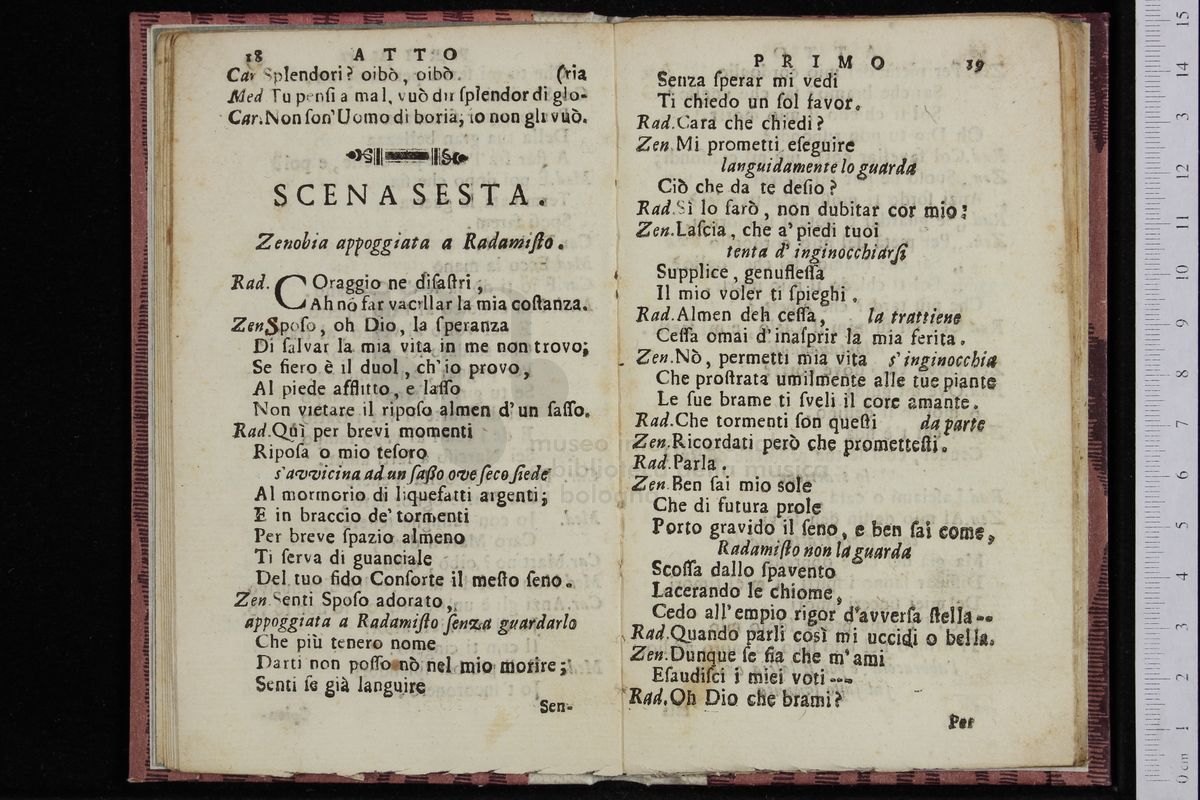 18 ATTO
Car Splendori? oibò, oibò. (ria
Med Tu pensi a mal, vuò dir ſplendor di glo-
Car. Non ſon' Uomo di boria; io non gli vuò.
SCENA SESTA.
Zenobia appoggiata a Radamiſto.
Rad. COraggio ne diſaſtri;
Ah nò far vacillar la mia coſtanza.
Zen Spoſo, oh Dio, la ſperanza
Di ſalvar la mia vita in me non trovo;
Se fiero è il duol, ch' io provo,
Al piede afflitto, e laſſo
Non vietare il ripoſo almen d' un ſaſſo.
Rad. Quì per brevi momenti
Ripoſa o mio teſoro
s' avvicina ad un ſaſſo ove ſeco ſiede
Al mormorio di liquefatti argenti;
E in braccio de' tormenti
Per breve ſpazio almeno
Ti ſerva di guanciale
Del tuo fido Conſorte il meſto ſeno.
Zen. Senti Spoſo adorato,
appoggiata a Radamiſto ſenza guardarlo
Che più tenero nome
Darti non poſſo nò nel mio morire;
Senti ſe già languire
Sen-
PRIMO 19
Senza ſperar mi vedi
Ti chiedo un ſol favor.
Rad. Cara che chiedi?
Zen. Mi prometti eſeguire
languidamente lo guarda
Ciò che da te deſio?
Rad. Sì lo farò, non dubitar cor mio:
Zen. Laſcia, che a' piedi tuoi
tenta d' inginocchiarſi
Supplice, genufleſſa
Il mio voler ti ſpieghi.
Rad. Almen deh ceſſa, la trattiene
Ceſſa omai d' inaſprir la mia ferita.
Zen. Nò, permetti mia vita s' inginocchia
Che proſtrata umilmente alle tue piante
Le ſue brame ti ſveli il core amante.
Rad. Che tormenti ſon queſti da parte
Zen. Ricordati però che prometteſti.
Rad. Parla.
Zen. Ben ſai mio sole
Che di futura prole
Porto gravido il ſeno, e ben ſai come,
Radamiſto non la guarda
Scoſſa dallo ſpavento
Lacerando le chiome,
Cedo all' empio rigor d'avverſa ſtella --
Rad. Quando parli così mi uccidi o bella.
Zen. Dunque ſe ſia che m' ami
Eſaudiſci i miei voti ---
Rad. Oh Dio che brami?
Per
museo in
biblioteca della musica
bologna